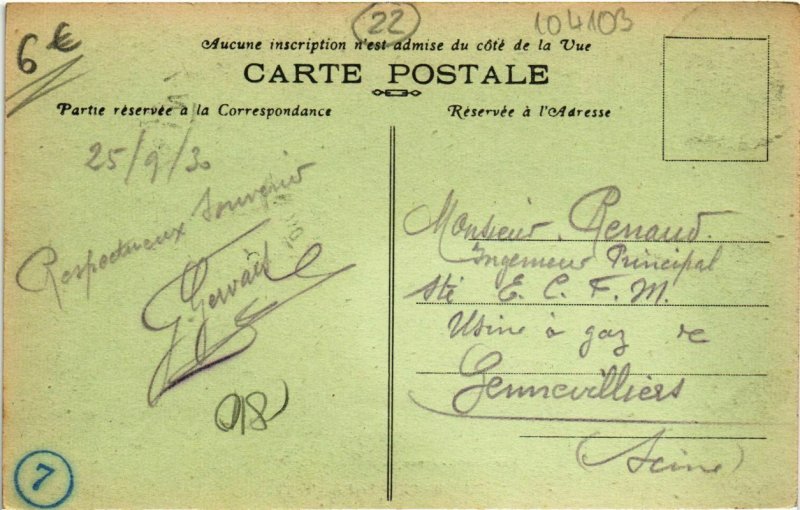 6 €
22
104103
Aucune inscription n'est admise du côté de la Vue
CARTE POSTALE
Partie réservée a la Correspondance
Réservée à l'Adresse
25/9/30
Respectueux Souvenir
G. Gervais
18
7
Monsieur Renaud
Ingenieur Principal
Sté E. C. F. M.
Usine à gaz de
Gennevilliers
(Seine)